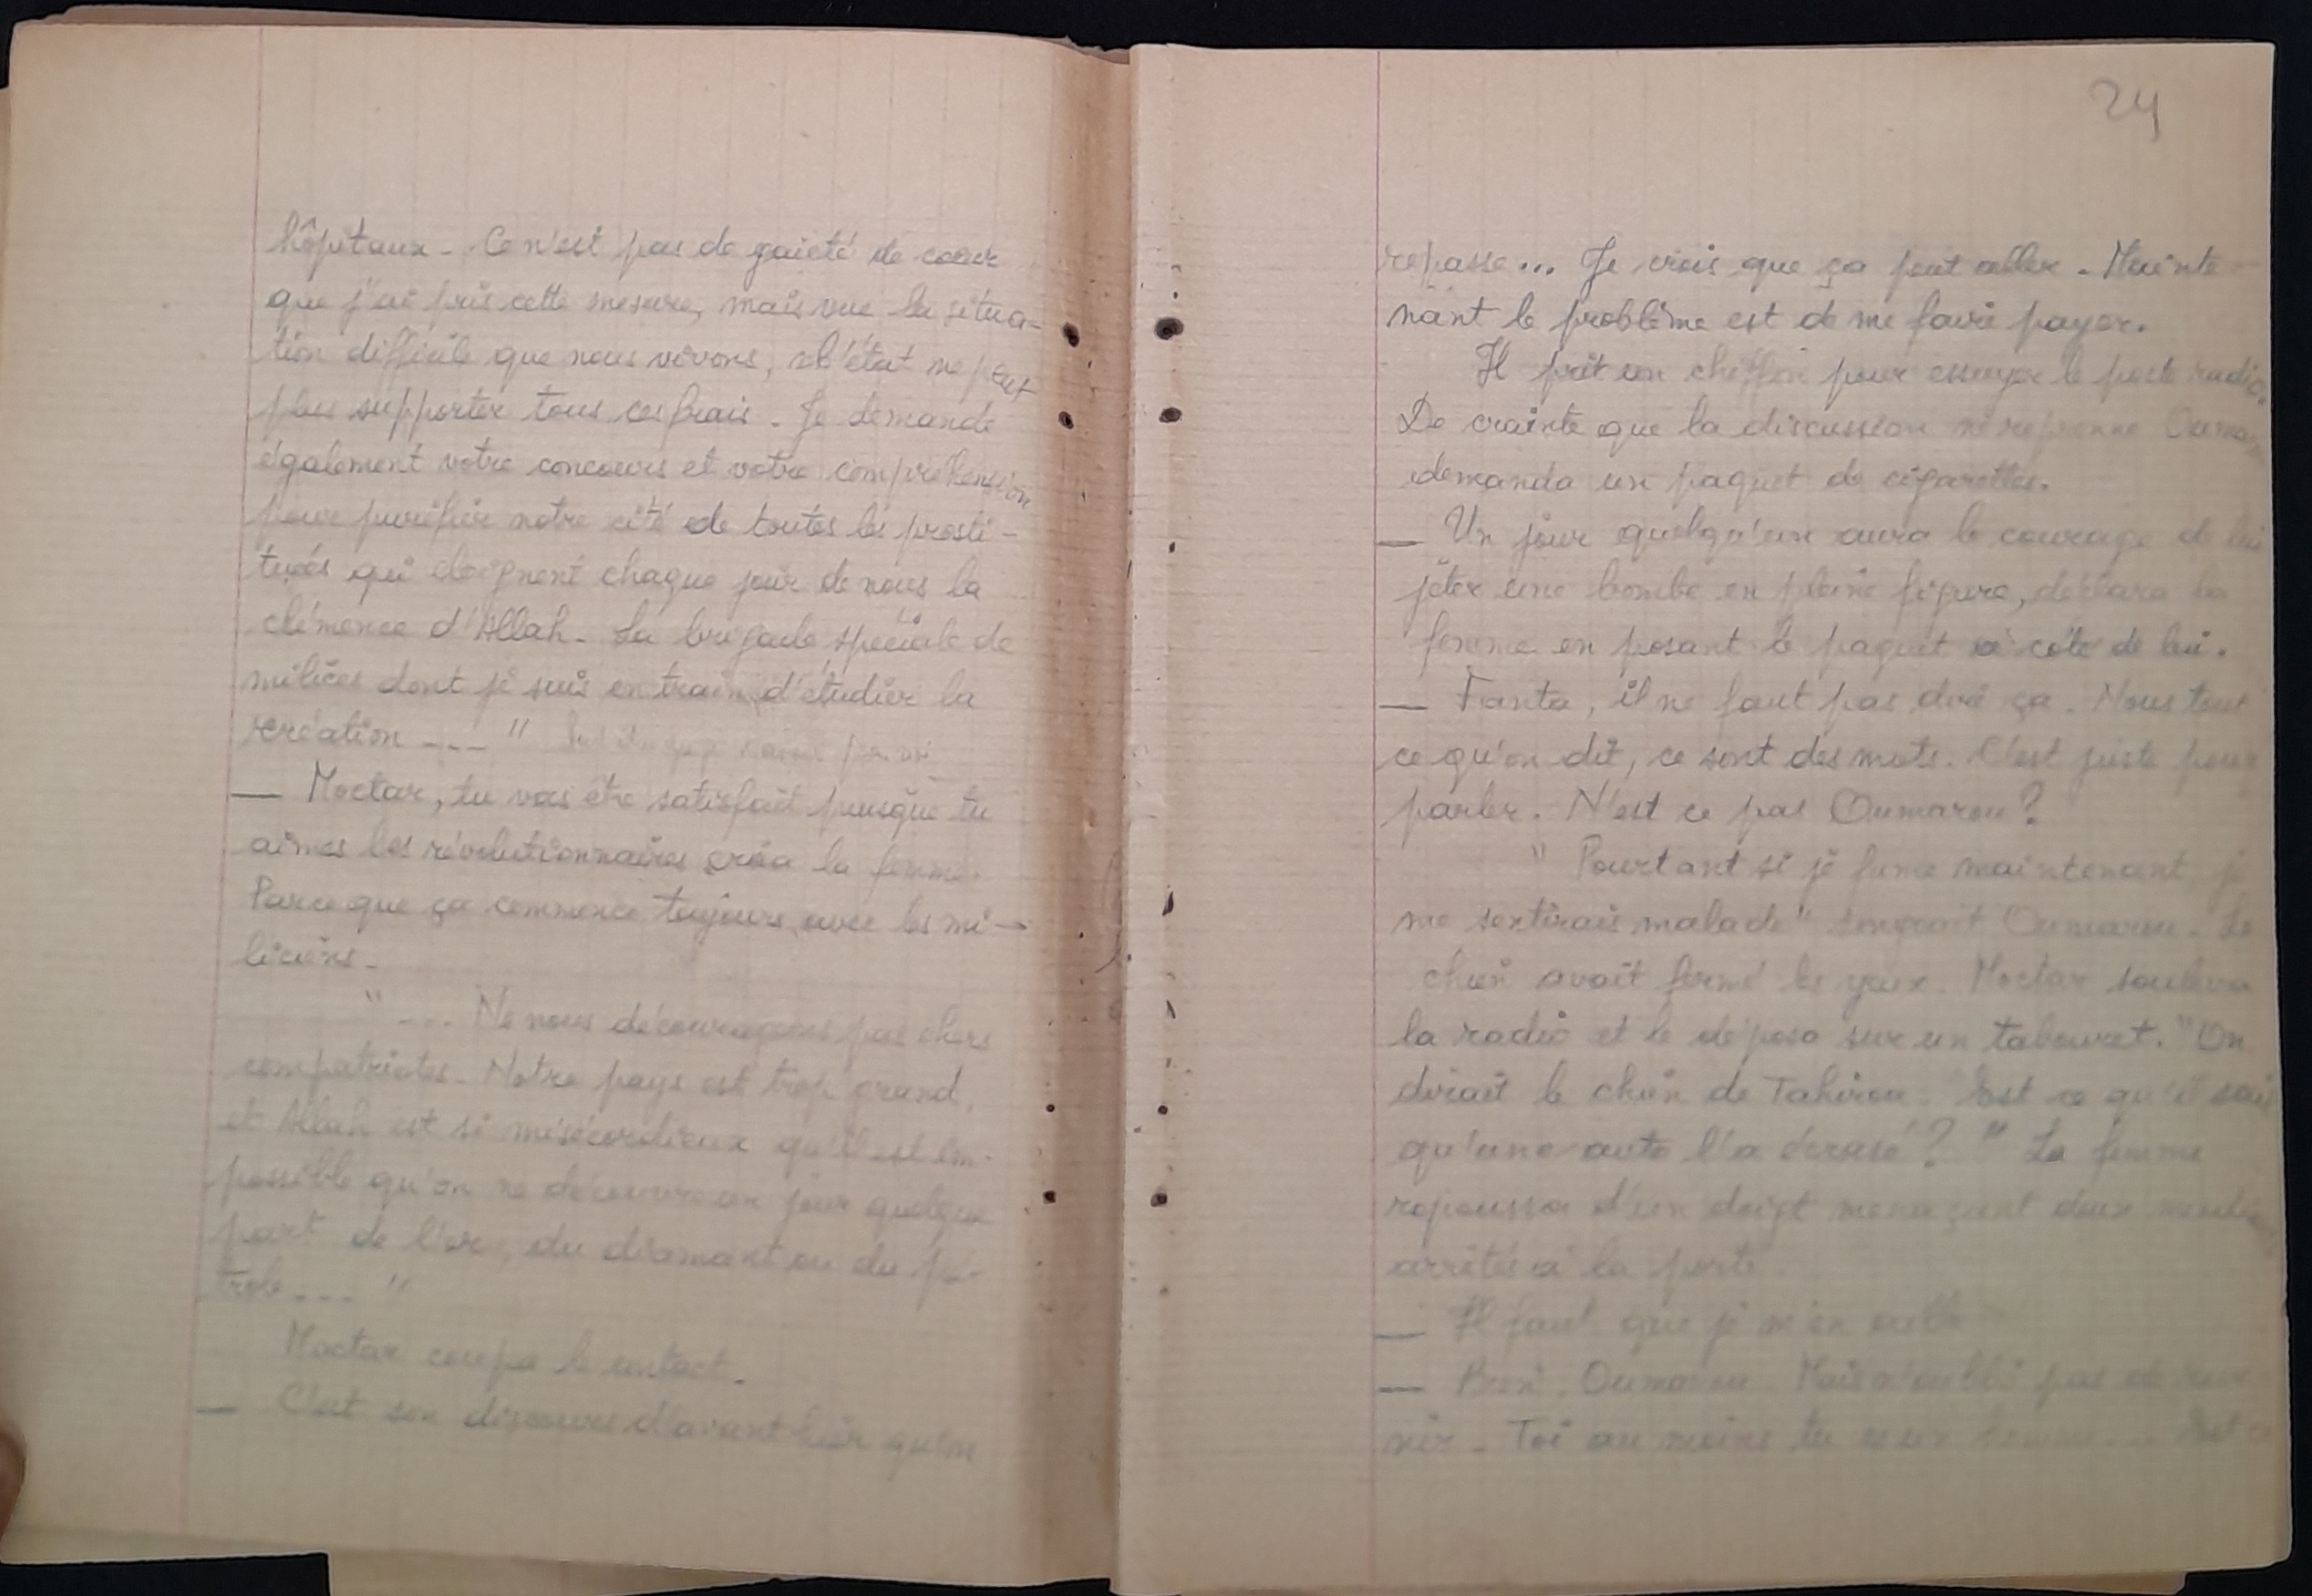 hôpitaux - Ce n'est pas de gaieté de coeur
que j'ai pris cette mesure, mais vue la situa-
tion difficile que nous vivons, l'état ne peut
plus supporter tous ces frais - Je demande
également votre concours et votre compréhension
pour purifier notre cité de toutes les prosti-
tuées qui éloignent chaque jour de nous la
clémence d'Allah - La brigade spéciale de
milices dont je suis en train d'étudier la
création --- "
— Moctar, tu vas être satisfait puisque tu
aimes les révolutionnaires cria la femme.
Parce que ça commence toujours avec les mi-
liciens -
" --- Ne nous décourageons pas chers
compatriotes - Notre pays est trop grand,
et Allah est si miséricordieux qu'il est im-
possible qu'on ne découvre un jour quelque
part de l'or, du diamant ou du pé-
trole --- "
Moctar coupa le contact -
— C'est son discours d'avant hier qu'on
24
repasse... Je crois que ça peut aller - Mainte-
nant le problème est de me faire payer.
Il prit un chiffon pour essuyer le poste radio.
De crainte que la discussion ne reprenne Oumarou
demanda un paquet de cigarettes.
— Un jour quelqu'un aura le courage de lui
jeter une bombe en pleine figure, déclara la
femme en posant le paquet à côté de lui.
— Fanta, il ne faut pas dire ça. Nous tout
ce qu'on dit, ce sont des mots. C'est juste pour
parler. N'est ce pas Oumarou?
" Pourtant si je fume maintenant, je
me sentirais malade" songeait Oumarou - Le
chien avait fermé les yeux. Moctar souleva
la radio et le déposa sur un tabouret. "On
dirait le chien de Tahirou. Est ce qu'il sait
qu'une auto l'a écrasé? " La femme
repoussa d'un doigt menaçant deux
arrêtés à la porte.
— Il faut que je m'en aille
— Bon, Oumarou. Mais n'oublie pas de reve-
nir - Toi au moins tu es un homme... Est ce